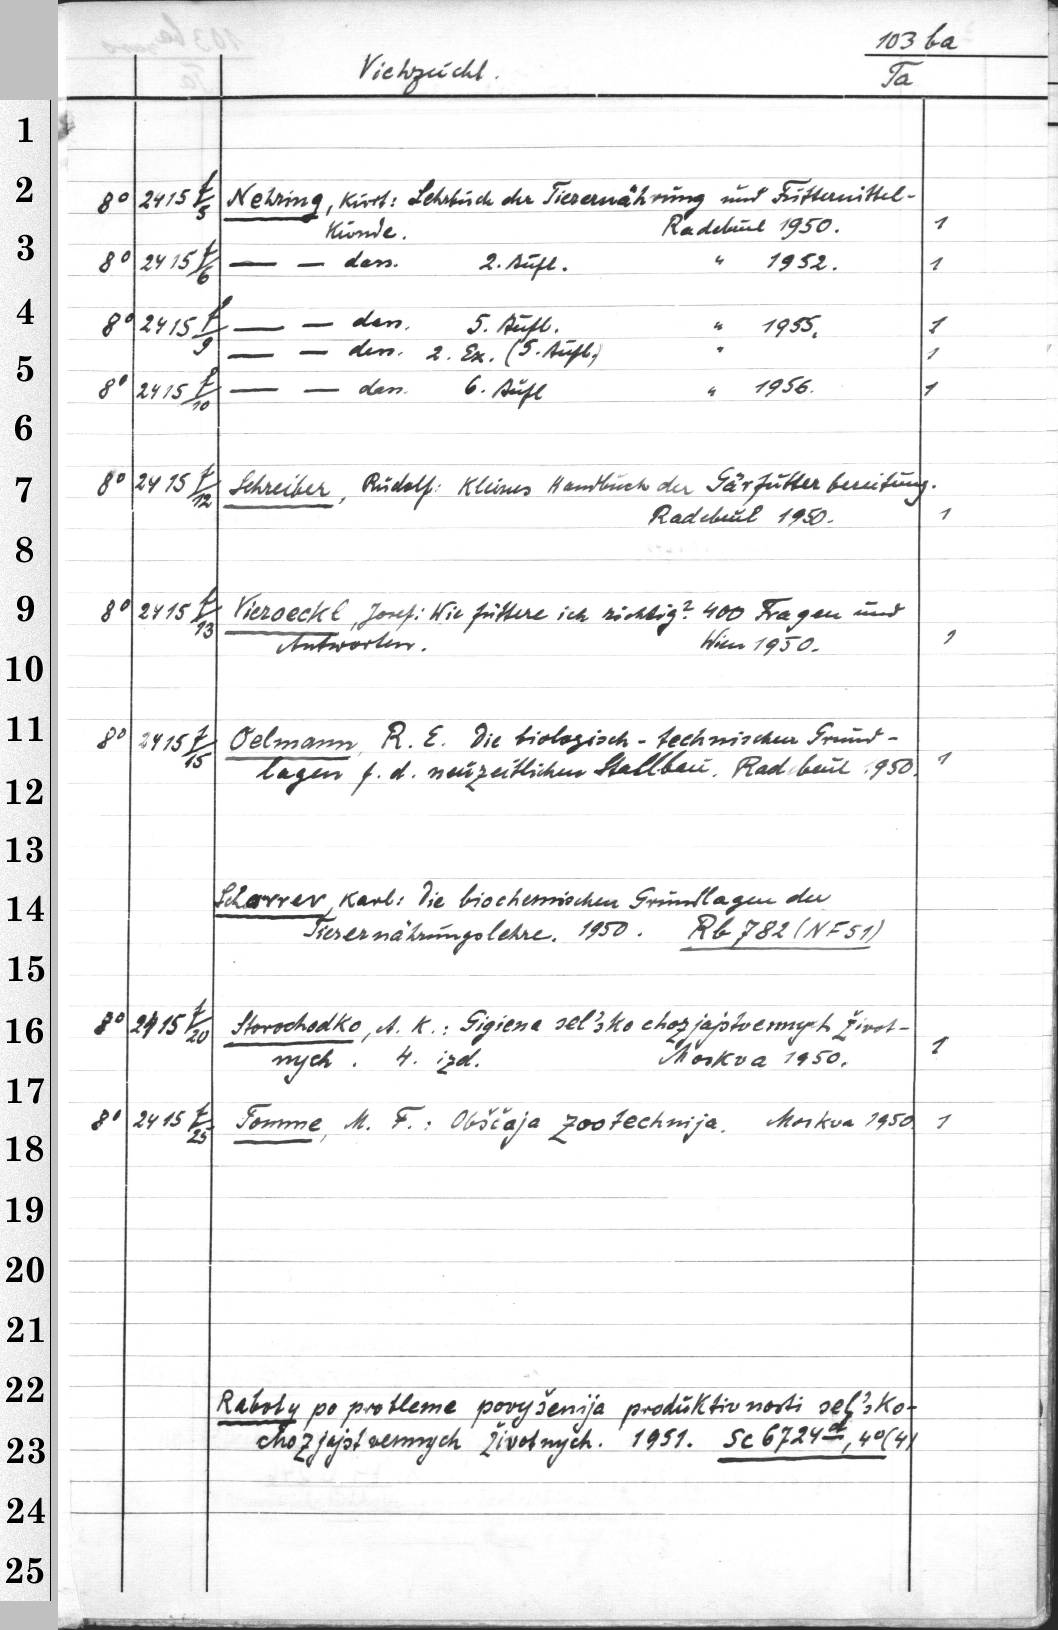 103 ba
Viehzucht. Ta
1
2
8° 2415 f/5 Nehring, Kurt: Lehrbuch der Tierernährung und Futtermittel-
kunde. Radebeul 1950. 1
3
8° 2415 f/6 — — dass. 2. Aufl. " 1952. 1
4
8° 2415 f/9 — — dass. 5. Aufl. " 1955. 1
— — dass. 2. Ex. (5. Aufl.) " 1
5
8° 2415 f/10 — — dass. 6. Aufl " 1956. 1
6
7
8° 2415 f/12 Schreiber, Rudolf: Kleines Handbuch der Gärfutterbereitung.
Radebeul 1950. 1
8
9
8° 2415 f/13 Vieroeckl, Josef: Wie füttere ich richtig? 400 Fragen und
Antworten. Wien 1950. 1
10
11
8° 2415 f/15 Oelmann, R. E. Die biologisch-technischen Grund-
lagen f. d. neuzeitlichen Stallbau. Radebeul 1950. 1
12
13
14
Scharrer, Karl: Die biochemischen Grundlagen der
Tierernährungslehre. 1950. Rb 782 (NF 51)
15
16
8° 2415 f/20 Storochodko, A. K.: Gigiena sel'skochozjajstvennych život-
nych. 4. izd. Moskva 1950. 1
17
8° 2415 f/25 Tomme, M. F.: Obščaja zootechnija. Moskva 1950. 1
18
19
20
21
22
Raboty po probleme povyšenija produktivnosti sel'sko-
chozjajstvennych životnych. 1951. Sc 6724 d, 4° (4)
23
24
25